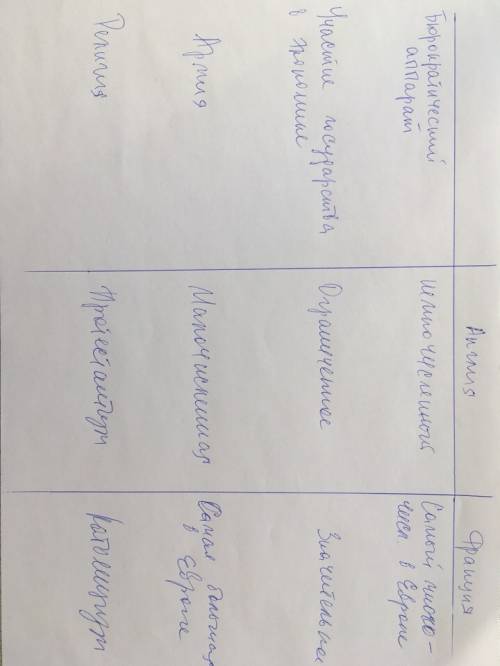 Англия
Франция
Бюрократический
аппарат
Самый много-
числ. в Европе
Участие государства
в экономике
Ограниченное
Значительное
Армия
Малочисленная
Самая большая
в Европе
Религия
Протестантизм
Католицизм